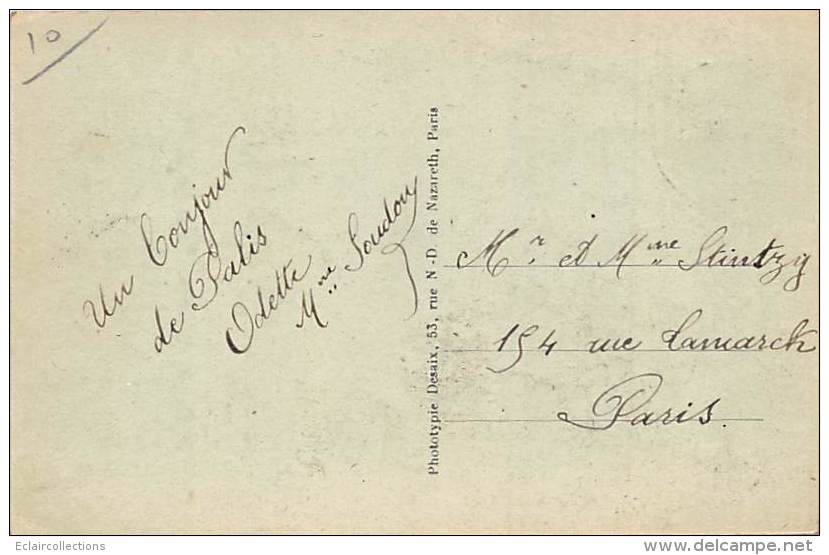 10
Un bonjour
de Palis
Odette
Mme Soudou
Phototypie Desaix, 53, rue N.-D. de Nazareth, Paris
Mr et Mme Stintzy
154 rue Lamarck
Paris.
Eclaircollections
http://www.delcampe.net